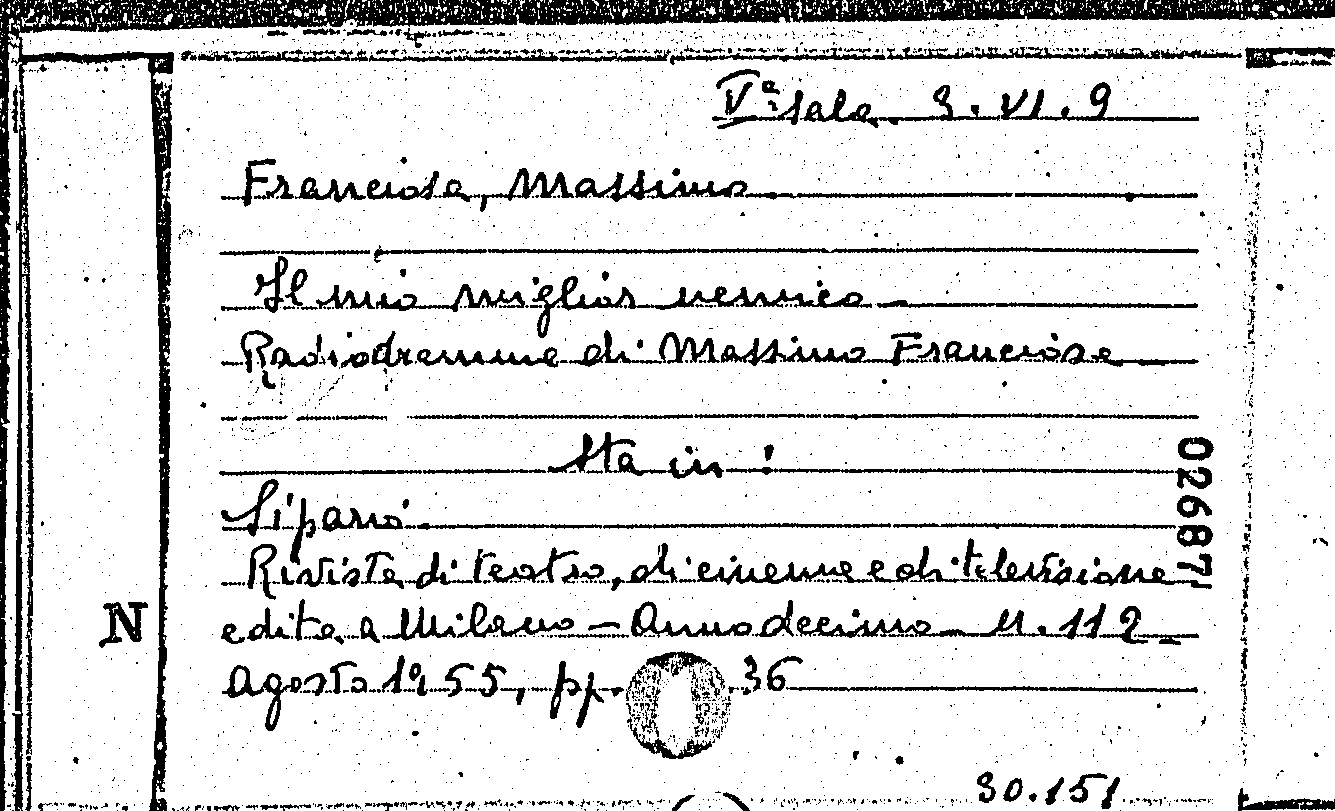 Vª sala. 3.VI.9
Franciosa, Massimo.
Il mio miglior nemico -
Radiodramma di Massimo Franciosa -
Sta in:
Sipario.
Rivista di teatro, di cinema e di televisione
edita a Milano - Anno decimo - N. 112 -
Agosto 1955, pp. 36
02687
N
30.151